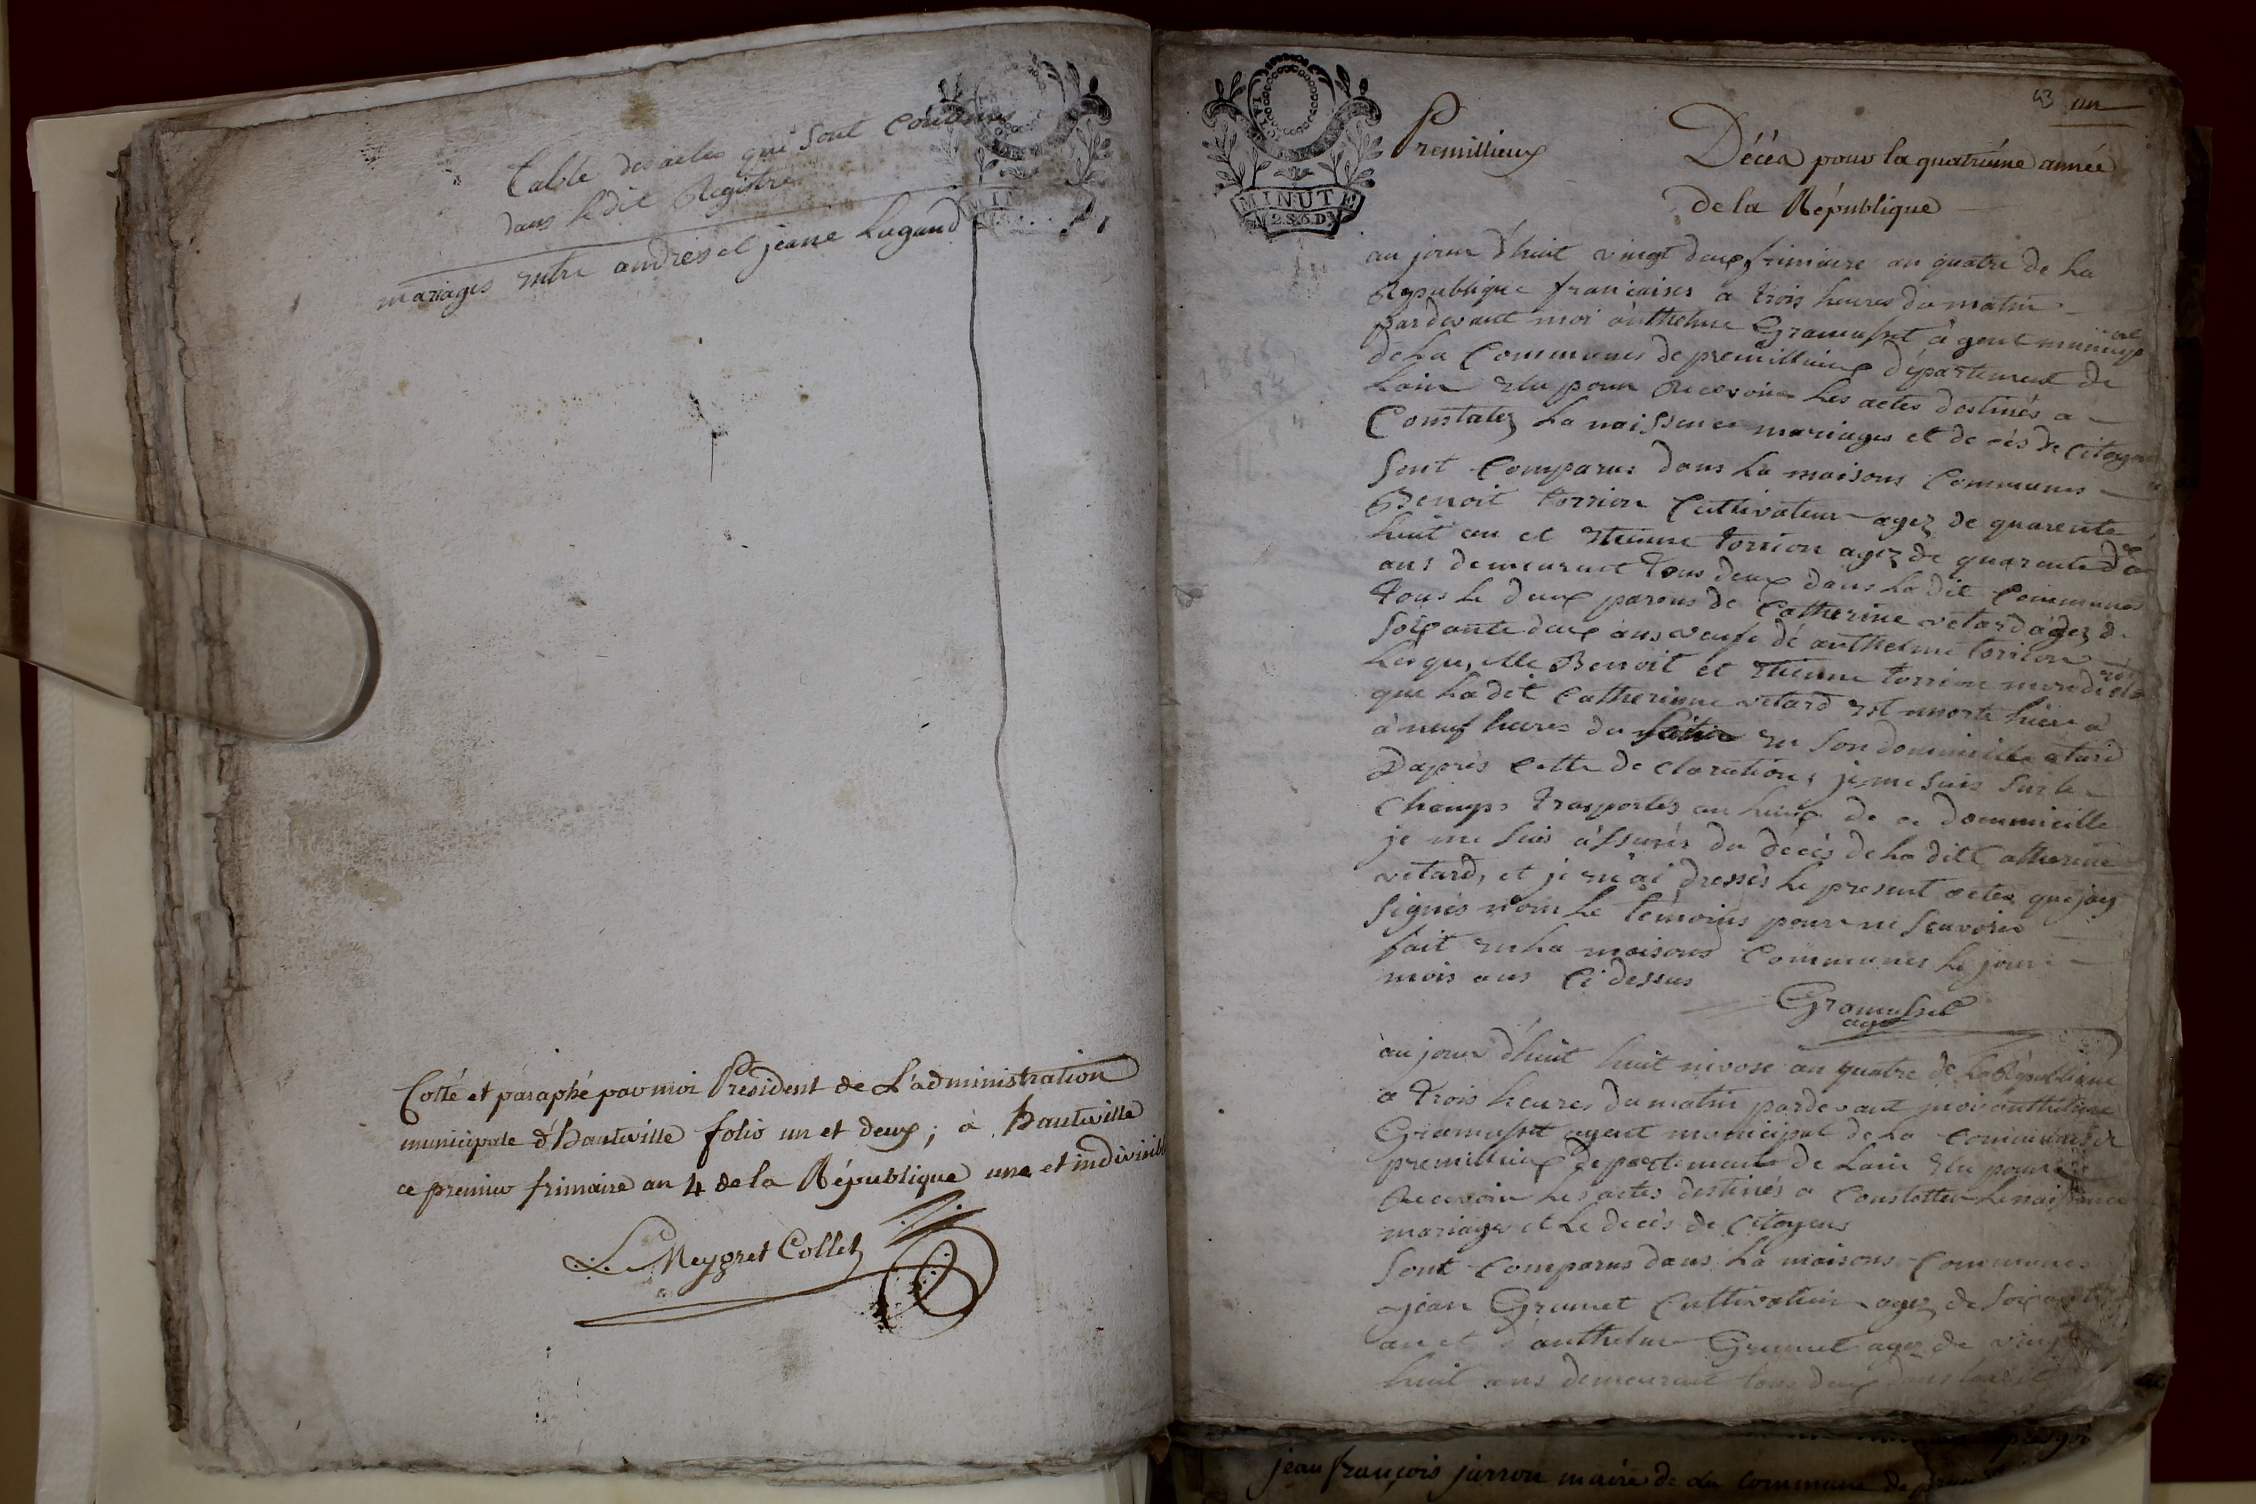 Table des actes qui sont contenus
dans le dit Registre
mariages entre andres et jeane Lugand
Cotté et paraphé par moi Président de L'administration
municipale d'Hauteville folio un et deux ; à Hauteville
ce premier frimaire an 4 de la République une et indivisible
L. Meygret Collet
MINUTE
2 S. 6 D.
43 un
Premillieux
Décès pour la quatriéme année
de la République
au jour d'huit vingt deux frimaire an quatre de La
Republique francaises a trois heures du matin
pardevant moi anthelme Gramusset agent municipal
de La Communes de premillieux département de
Lain elu pour Recevoir Les actes destinés a
Constatez La naissence mariages et decés de Citoyens
Sont Comparus dans La maisons Communes
Benoit torrion Cultivateur agez de quarente
huit an et etienne torrion agez de quarente
ans demeurant tous deux dans La dit Communes
tous le deux parens de Catherine vetard agez de
soixante deux ans veufe de anthelme torrion
Lesqu'elle Benoit et etienne torrion mon déclaré
que La dit Catherinne vetard est morte hier a
à neuf heures du en son dommicille
Daprès cette declaration, je me suis sur le
Champs trasportés au lieux de ce dommicille
je me suis assurés du décés de La dit Catherine
vetard, et je n'ai dressés Le present actes que jay
signés non Le témoins pour ne scavoir
fait en La maisons Communes Le jour
mois ans Ci dessus
Gramusset
agt
au jour d'huit huit nivose an quatre de La République
a trois heures du matin pardevant moi anthelme
Gramusset agent municipal de La Communes de
premillieux departement de Lain elu pour
Recevoir Les actes destinés a Constatter Le naissance
mariages et Le decés de Citoyens
Sont Comparus dans La maisons Communes
jean Grumet Cultivateur agez de soixante
an et anthelme Grumet agez de vingt
huit ans demeurant tous deux dans
jean françois jurron maire de la Commune de